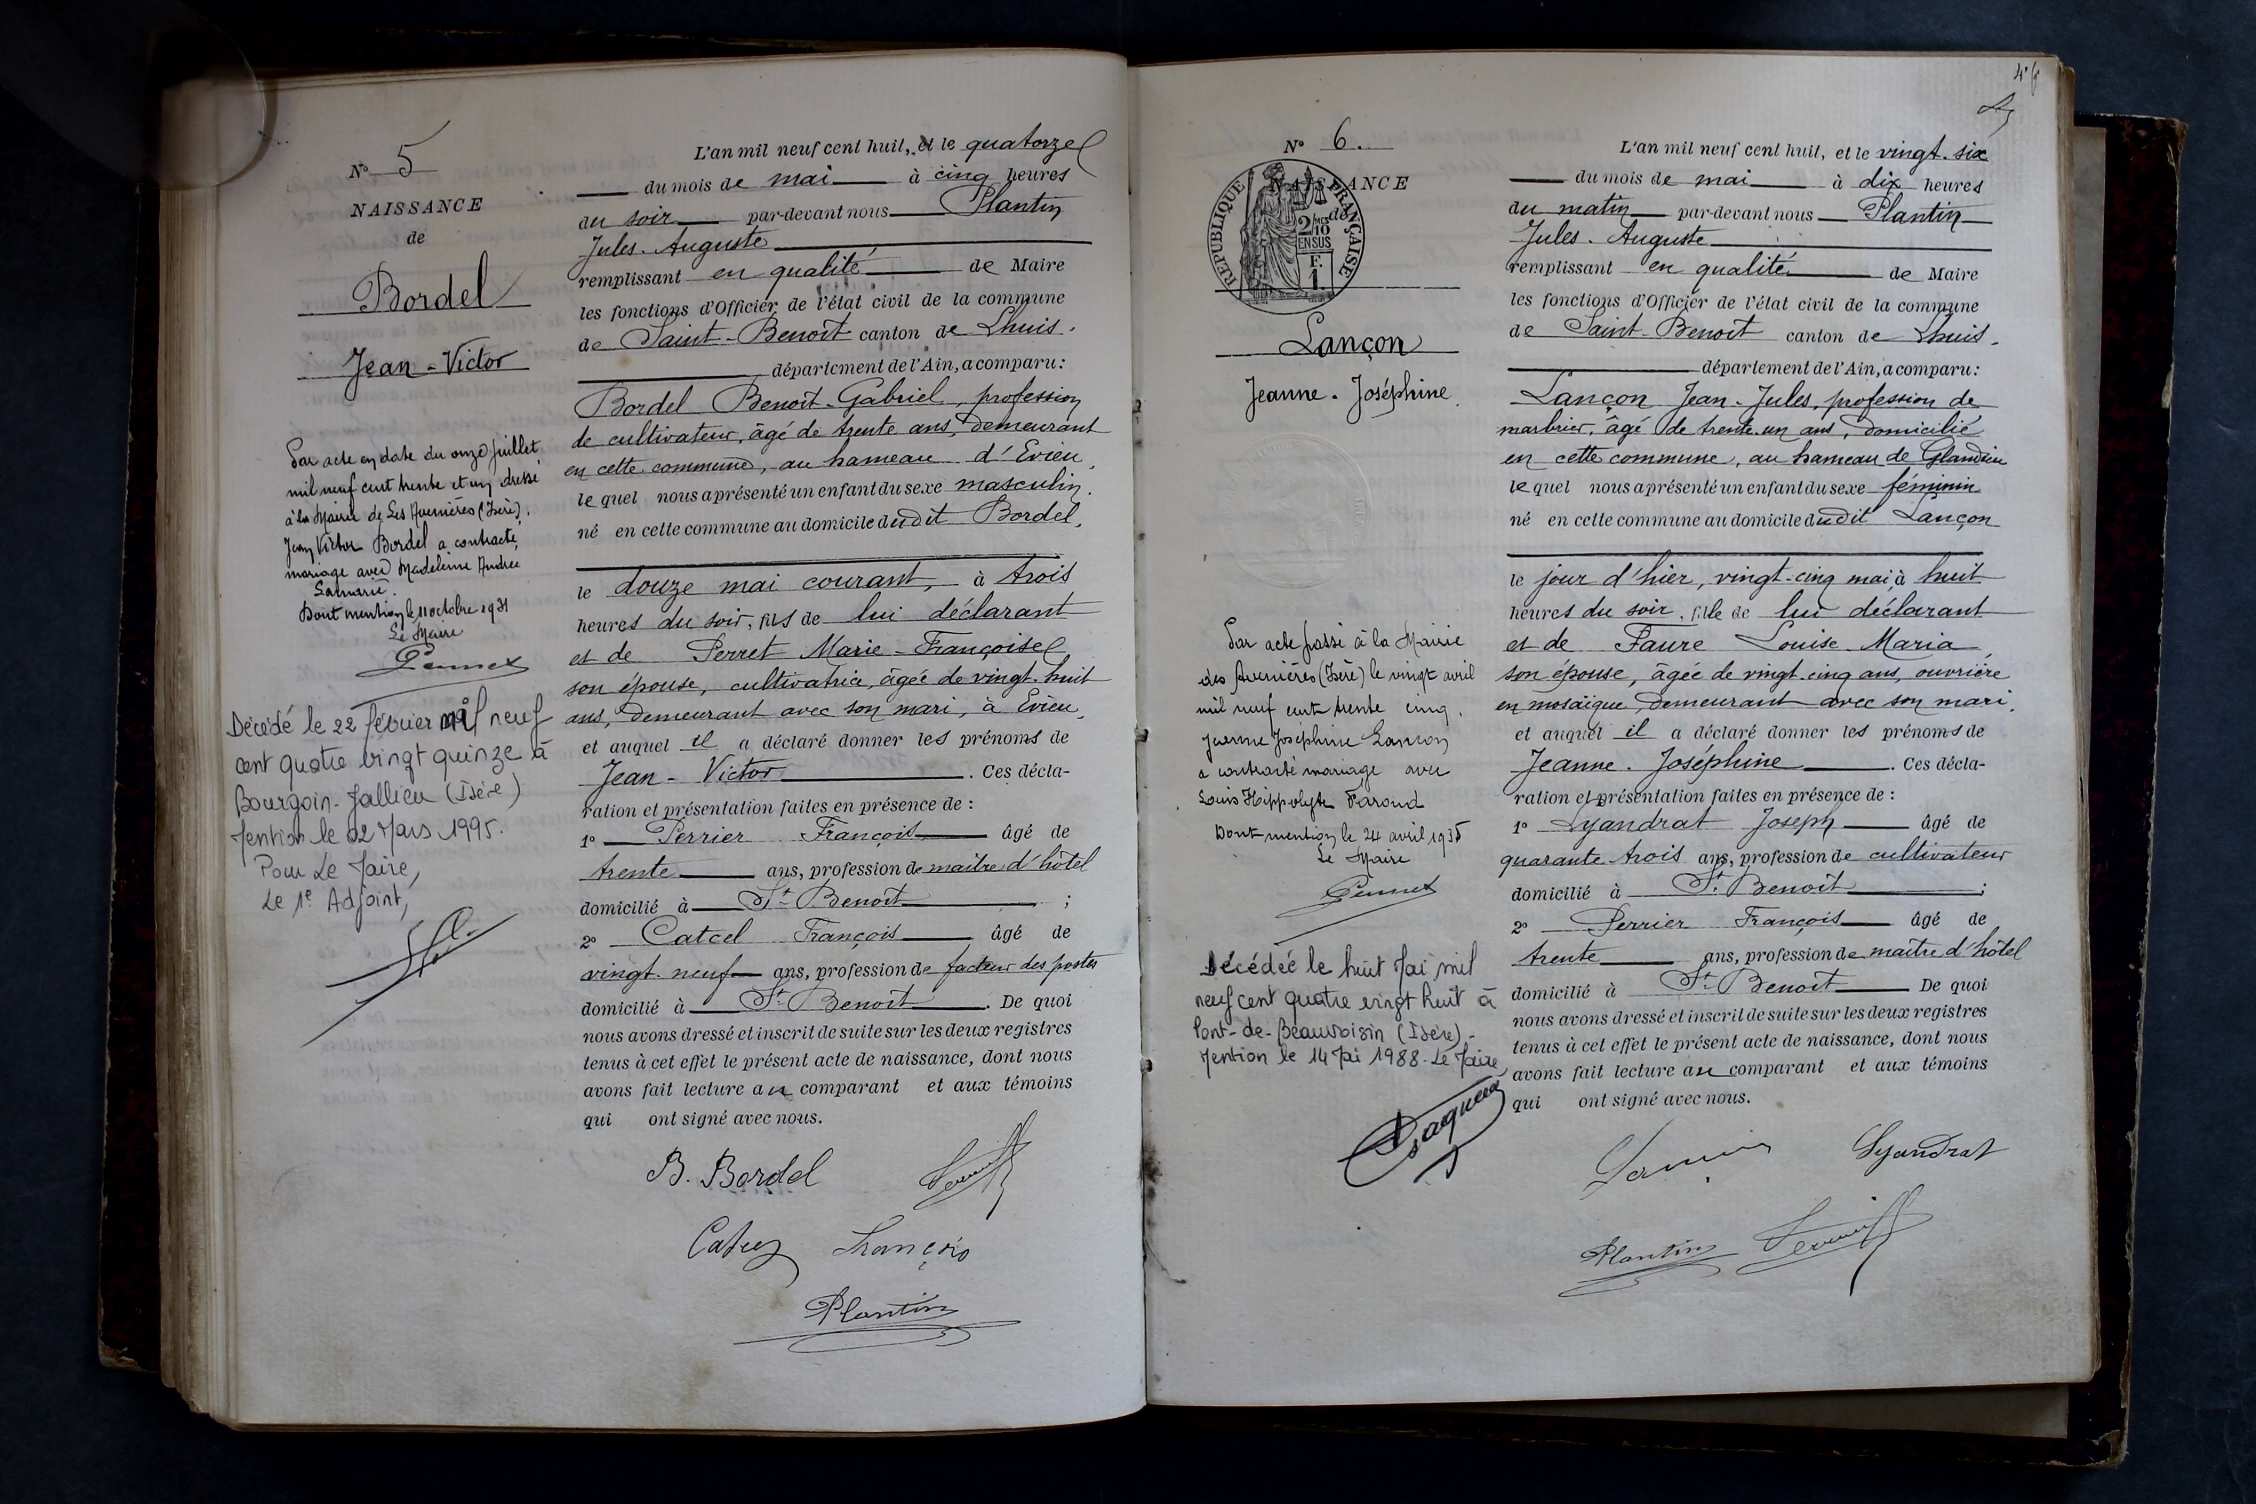 N° 5
NAISSANCE
de
Bordel
Jean-Victor
Par acte en date du onze juillet
mil neuf cent trente et un dressé
à la Mairie de Les Avenières (Isère),
Jean Victor Bordel a contracté
mariage avec Madeleine Andrée
Dont mention le 11 octobre 1931
Le Maire
Décédé le 22 février mil neuf
cent quatre vingt quinze à
Bourgoin-Jallieu (Isère)
Mention le 02 Mars 1995.
Pour Le Maire,
Le 1e Adjoint,
L'an mil neuf cent huit, et le quatorze
du mois de mai à cinq heures
du soir par-devant nous Plantin
Jules-Auguste
remplissant en qualité de Maire
les fonctions d'Officier de l'état civil de la commune
de Saint-Benoît canton de Lhuis.
département de l'Ain, a comparu:
Bordel Benoît-Gabriel, profession
de cultivateur, âgé de trente ans, demeurant
en cette commune, au hameau d'Evieu,
le quel nous a présenté un enfant du sexe masculin.
né en cette commune au domicile dudit Bordel,
le douze mai courant, à trois
heures du soir, fils de lui déclarant
et de Perret Marie-Françoise
son épouse, cultivatrice, âgée de vingt-huit
ans, demeurant avec son mari, à Evieu,
et auquel il a déclaré donner les prénoms de
Jean-Victor. Ces décla-
ration et présentation faites en présence de :
1° Perrier François âgé de
trente ans, profession de maître d'hôtel
domicilié à St-Benoît ;
2° Catcel François âgé de
vingt-neuf ans, profession de facteur des postes
domicilié à St-Benoît. De quoi
nous avons dressé et inscrit de suite sur les deux registres
tenus à cet effet le présent acte de naissance, dont nous
avons fait lecture au comparant et aux témoins
qui ont signé avec nous.
B. Bordel
François
Plantin
N° 6.
NAISSANCE
de
REPUBLIQUE FRANÇAISE
2/10 EN SUS
F. 1.
Lançon
Jeanne-Joséphine.
Par acte passé à la Mairie
des Avenières (Isère) le vingt avril
mil neuf cent trente cinq,
Jeanne Joséphine Lançon
a contracté mariage avec
Louis Hippolyte Faroud
Dont mention le 24 avril 1935
Le Maire
Décédée le huit Mai mil
neuf cent quatre vingt huit à
Pont-de-Beauvoisin (Isère)-
Mention le 14 Mai 1988-Le Maire,
L'an mil neuf cent huit, et le vingt-six
du mois de mai à dix heures
du matin par-devant nous Plantin
Jules-Auguste
remplissant en qualité de Maire
les fonctions d'Officier de l'état civil de la commune
de Saint-Benoît canton de Lhuis.
département de l'Ain, a comparu:
Lançon Jean-Jules, profession de
marbrier, âgé de trente-un ans, domicilié
en cette commune, au hameau de Glandieu
le quel nous a présenté un enfant du sexe féminin
né en cette commune au domicile dudit Lançon
le jour d'hier, vingt-cinq mai, à huit
heures du soir, fille de lui déclarant
et de Faure Louise Maria,
son épouse, âgée de vingt-cinq ans, ouvrière
en mosaïque, demeurant avec son mari,
et auquel il a déclaré donner les prénoms de
Jeanne-Joséphine. Ces décla-
ration et présentation faites en présence de :
1° Lyandrat Joseph âgé de
quarante-trois ans, profession de cultivateur
domicilié à St-Benoît ;
2° Perrier François âgé de
trente ans, profession de maître d'hôtel
domicilié à St-Benoît De quoi
nous avons dressé et inscrit de suite sur les deux registres
tenus à cet effet le présent acte de naissance, dont nous
avons fait lecture au comparant et aux témoins
qui ont signé avec nous.
Lyandrat
Plantin